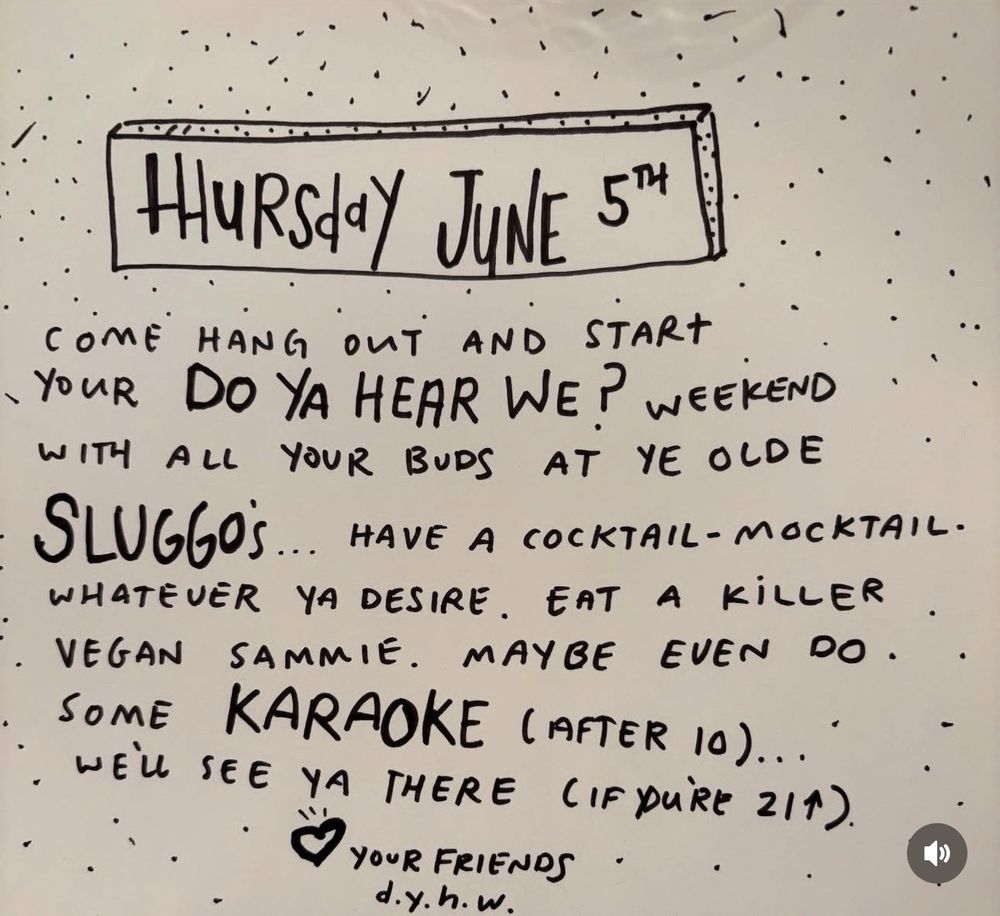 THURSdAY JUNE 5TH
COME HANG OUT AND START
YOUR DO YA HEAR WE? WEEKEND
WITH ALL YOUR BUDS AT YE OLDE
SLUGGO'S... HAVE A COCKTAIL-MOCKTAIL-
WHATEVER YA DESIRE. EAT A KiLLER
VEGAN SAMMIE. MAYBE EVEN DO
SOME KARAOKE (AFTER 10)...
WE'LL SEE YA THERE (IF YOU'RE 21↑).
YOUR FRIENDS
d.y.h.w.